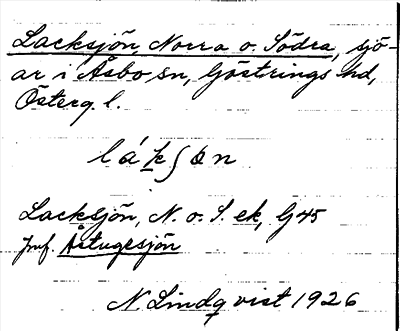 Lacksjön, Norra o. Södra, sjö-
ar i Åsbo sn, Göstrings hd,
Österg. l.
lák∫ön
Lacksjön, N. o. S. ek, G45
Jmf. Åstugesjön
N Lindqvist 1926